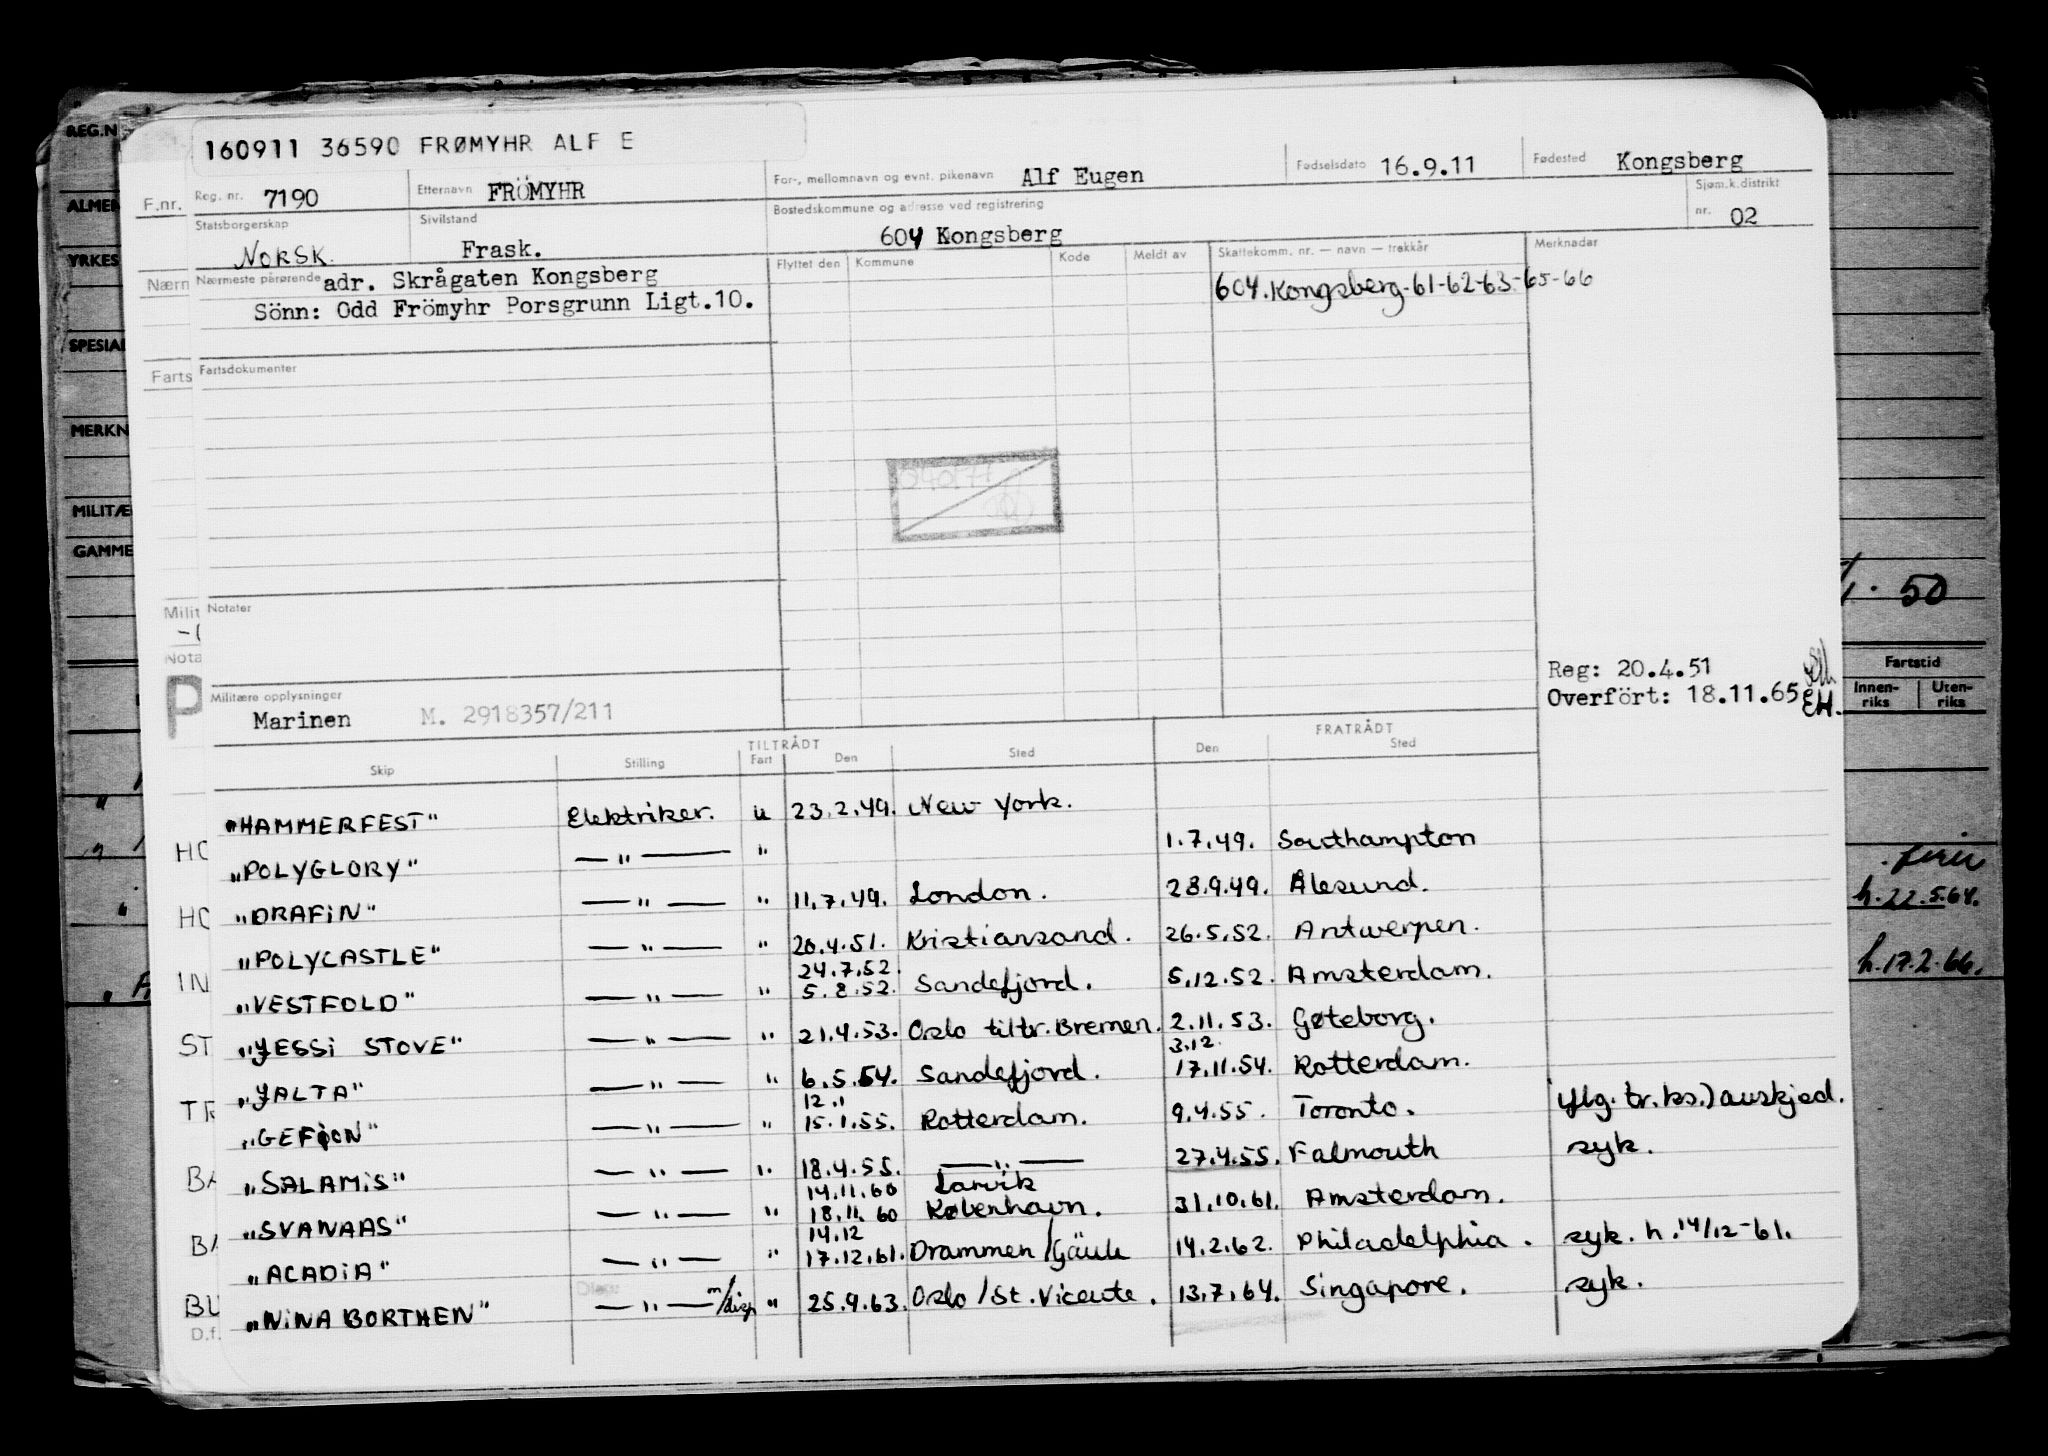 160911 36590 FRØMYHR ALF E
Reg. nr. 7190 Etternavn FRÖMYHR For-, mellomnavn og evnt. pikenavn Alf Eugen Fødselsdato 16.9.11 Fødested Kongsberg
Statsborgerskap NORSK. Sivilstand Frask. Bostedskommune og adresse ved registrering 604 Kongsberg Sjøm.k.distrikt nr. 02
Nærmeste pårørende adr. Skrågaten Kongsberg
Sönn: Odd Frömyhr Porsgrunn Ligt.10.
Flyttet den Kommune Kode Meldt av Skattekomm. nr. — navn — trekkår Merknader
604. Kongsberg-61-62-63-65-66
Fartsdokumenter
Notater
Militære opplysninger
Marinen M. 2918357/211
Reg: 20.4.51
Overfört: 18.11.65 EH.
TILTRÅDT FRATRÅDT
Skip Stilling Fart Den Sted Den Sted
"HAMMERFEST" Elektriker. u 23.2.49. New York.
"POLYGLORY" — " — " 1.7.49. Southampton
"DRAFIN" — " — " 11.7.49. London. 28.9.49. Ålesund.
"POLYCASTLE" — " — " 20.4.51. Kristiansand. 26.5.52. Antwerpen.
24.7.52.
"VESTFOLD" — " — " 5.8.52. Sandefjord. 5.12.52. Amsterdam.
"JESSI STOVE" — " — " 21.4.53. Oslo tiltr. Bremen. 2.11.53. Gøteborg.
3.12.
"JALTA" — " — " 6.5.54. Sandefjord. 17.11.54. Rotterdam.
12.1
"GEFION" — " — " 15.1.55. Rotterdam. 9.4.55. Toronto. avskjed.
"SALAMIS" — " — " 18.4.55. — " — 27.4.55. Falmouth syk.
14.11.60 Larvik
"SVANAAS" — " — " 18.11.60 København. 31.10.61. Amsterdam.
14.12
"ACADIA" — " — " 17.12.61. Drammen/Gäule 14.2.62. Philadelphia. syk. h. 14/12-61.
"NINA BORTHEN" — " — m/disp " 25.9.63. Oslo/St. Vicente. 13.7.64. Singapore. syk.
REG.N
F.nr.
YRKES
Nærn
SPESIAL
Farts
MERKN
MILITÆ
GAMME
Milit
Nota
P
HO
HO
IN
ST
TR
BA
BA
BU
D.f.
50
Fartstid
Innen-riks Uten-riks
h. 22.5.64.
h. 17.2.66.